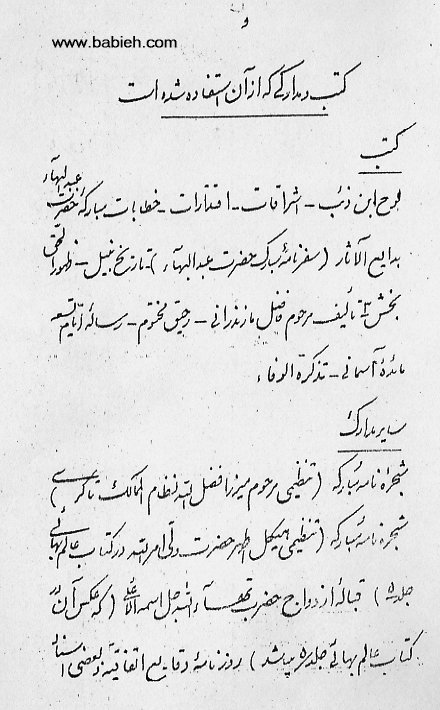 و
www.babieh.com
کتب و مدارکی که از آن استفاده شده است
کتب
لوح ابن ذئب - اشراقات - اقتدارات - خطابات مبارکه حضرت عبدالبهآء
بدایع الآثار (سفرنامهٔ مبارک حضرت عبدالبهآء) - تاریخ نبیل - ظهورالحق
بخش ۳ تألیف مرحوم فاضل مازندرانی - رحیق مختوم - رسالهٔ ایّام تسعه
مائدهٔ آسمانی - تذکرة الوفاء
سایر مدارک
شجره نامهٔ مبارکه (تنظیمی مرحوم میرزا فضل الله نظام الممالک تاکری)
شجره نامهٔ مبارکه (تنظیمی هیکل اطهر حضرت ولیّ امرالله در کتاب عالم بهائی
جلد ۵) قبالهٔ ازدواج حضرت بهآءالله جلّ اسمه الاعلی (که عکس آن در
کتاب عالم بهائی جلد ۵ میباشد) روزنامهٔ وقایع اتفاقیّه و بعضی اسناد